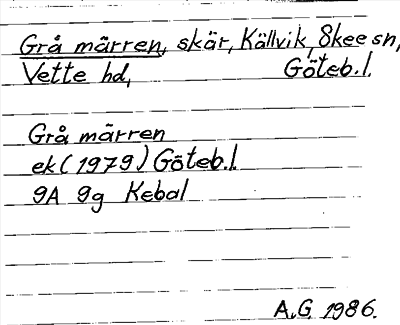 Grå märren, skär, Källvik, Skee sn,
Vette hd, Göteb.l.
Grå märren
ek (1979) Göteb.l.
9A 9g Kebal
A.G. 1986.